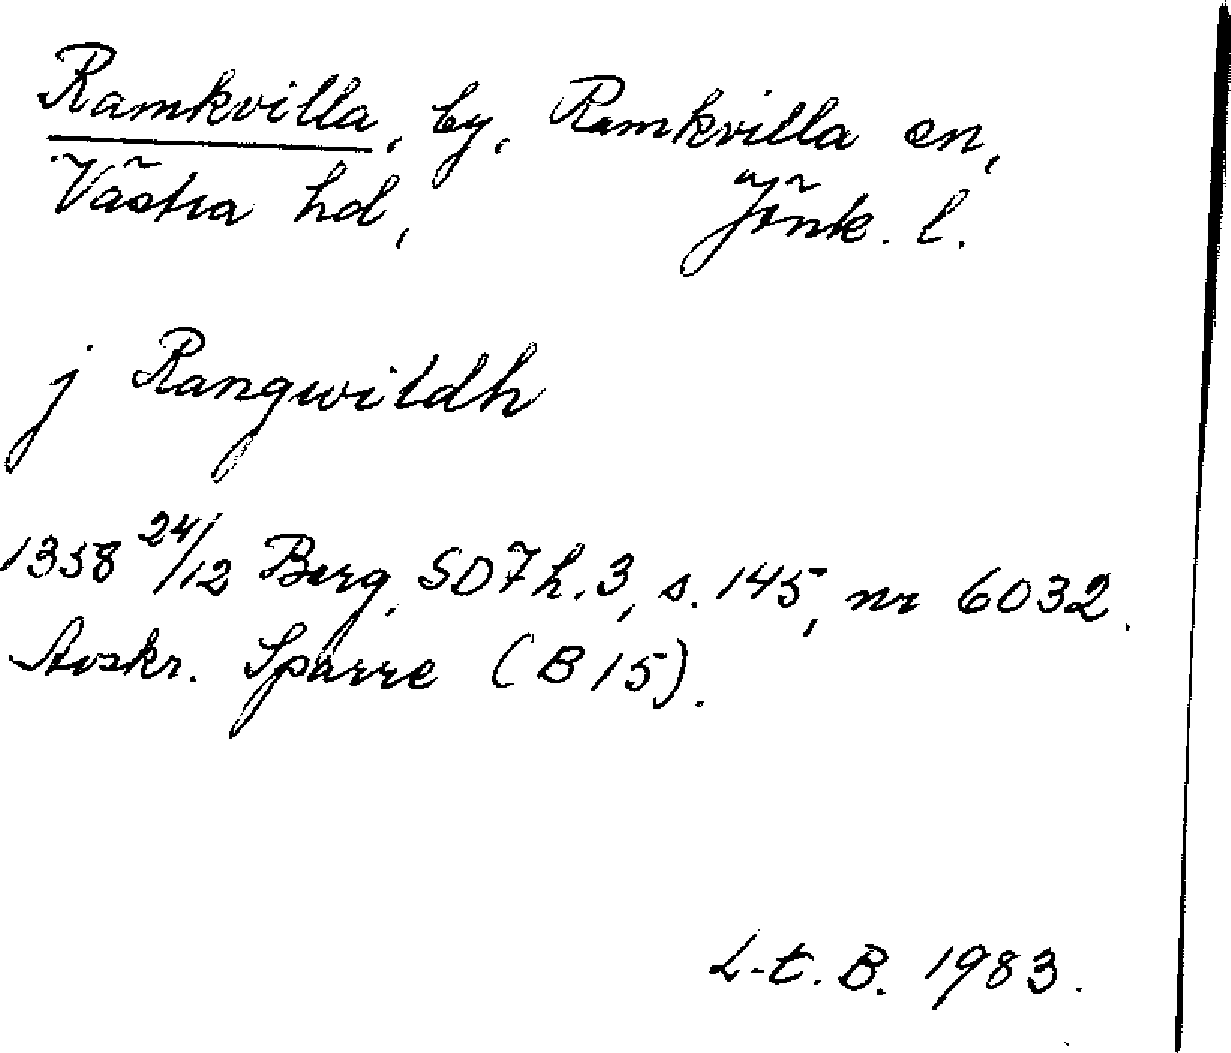 Ramkvilla, by, Ramkvilla sn,
Västra hd, Jönk. l.
j Rangwildh
1358 24/12 Berg, SD 7 h. 3, s. 145, nr 6032.
Avskr. Sparre (B 15).
L-t. B. 1983.